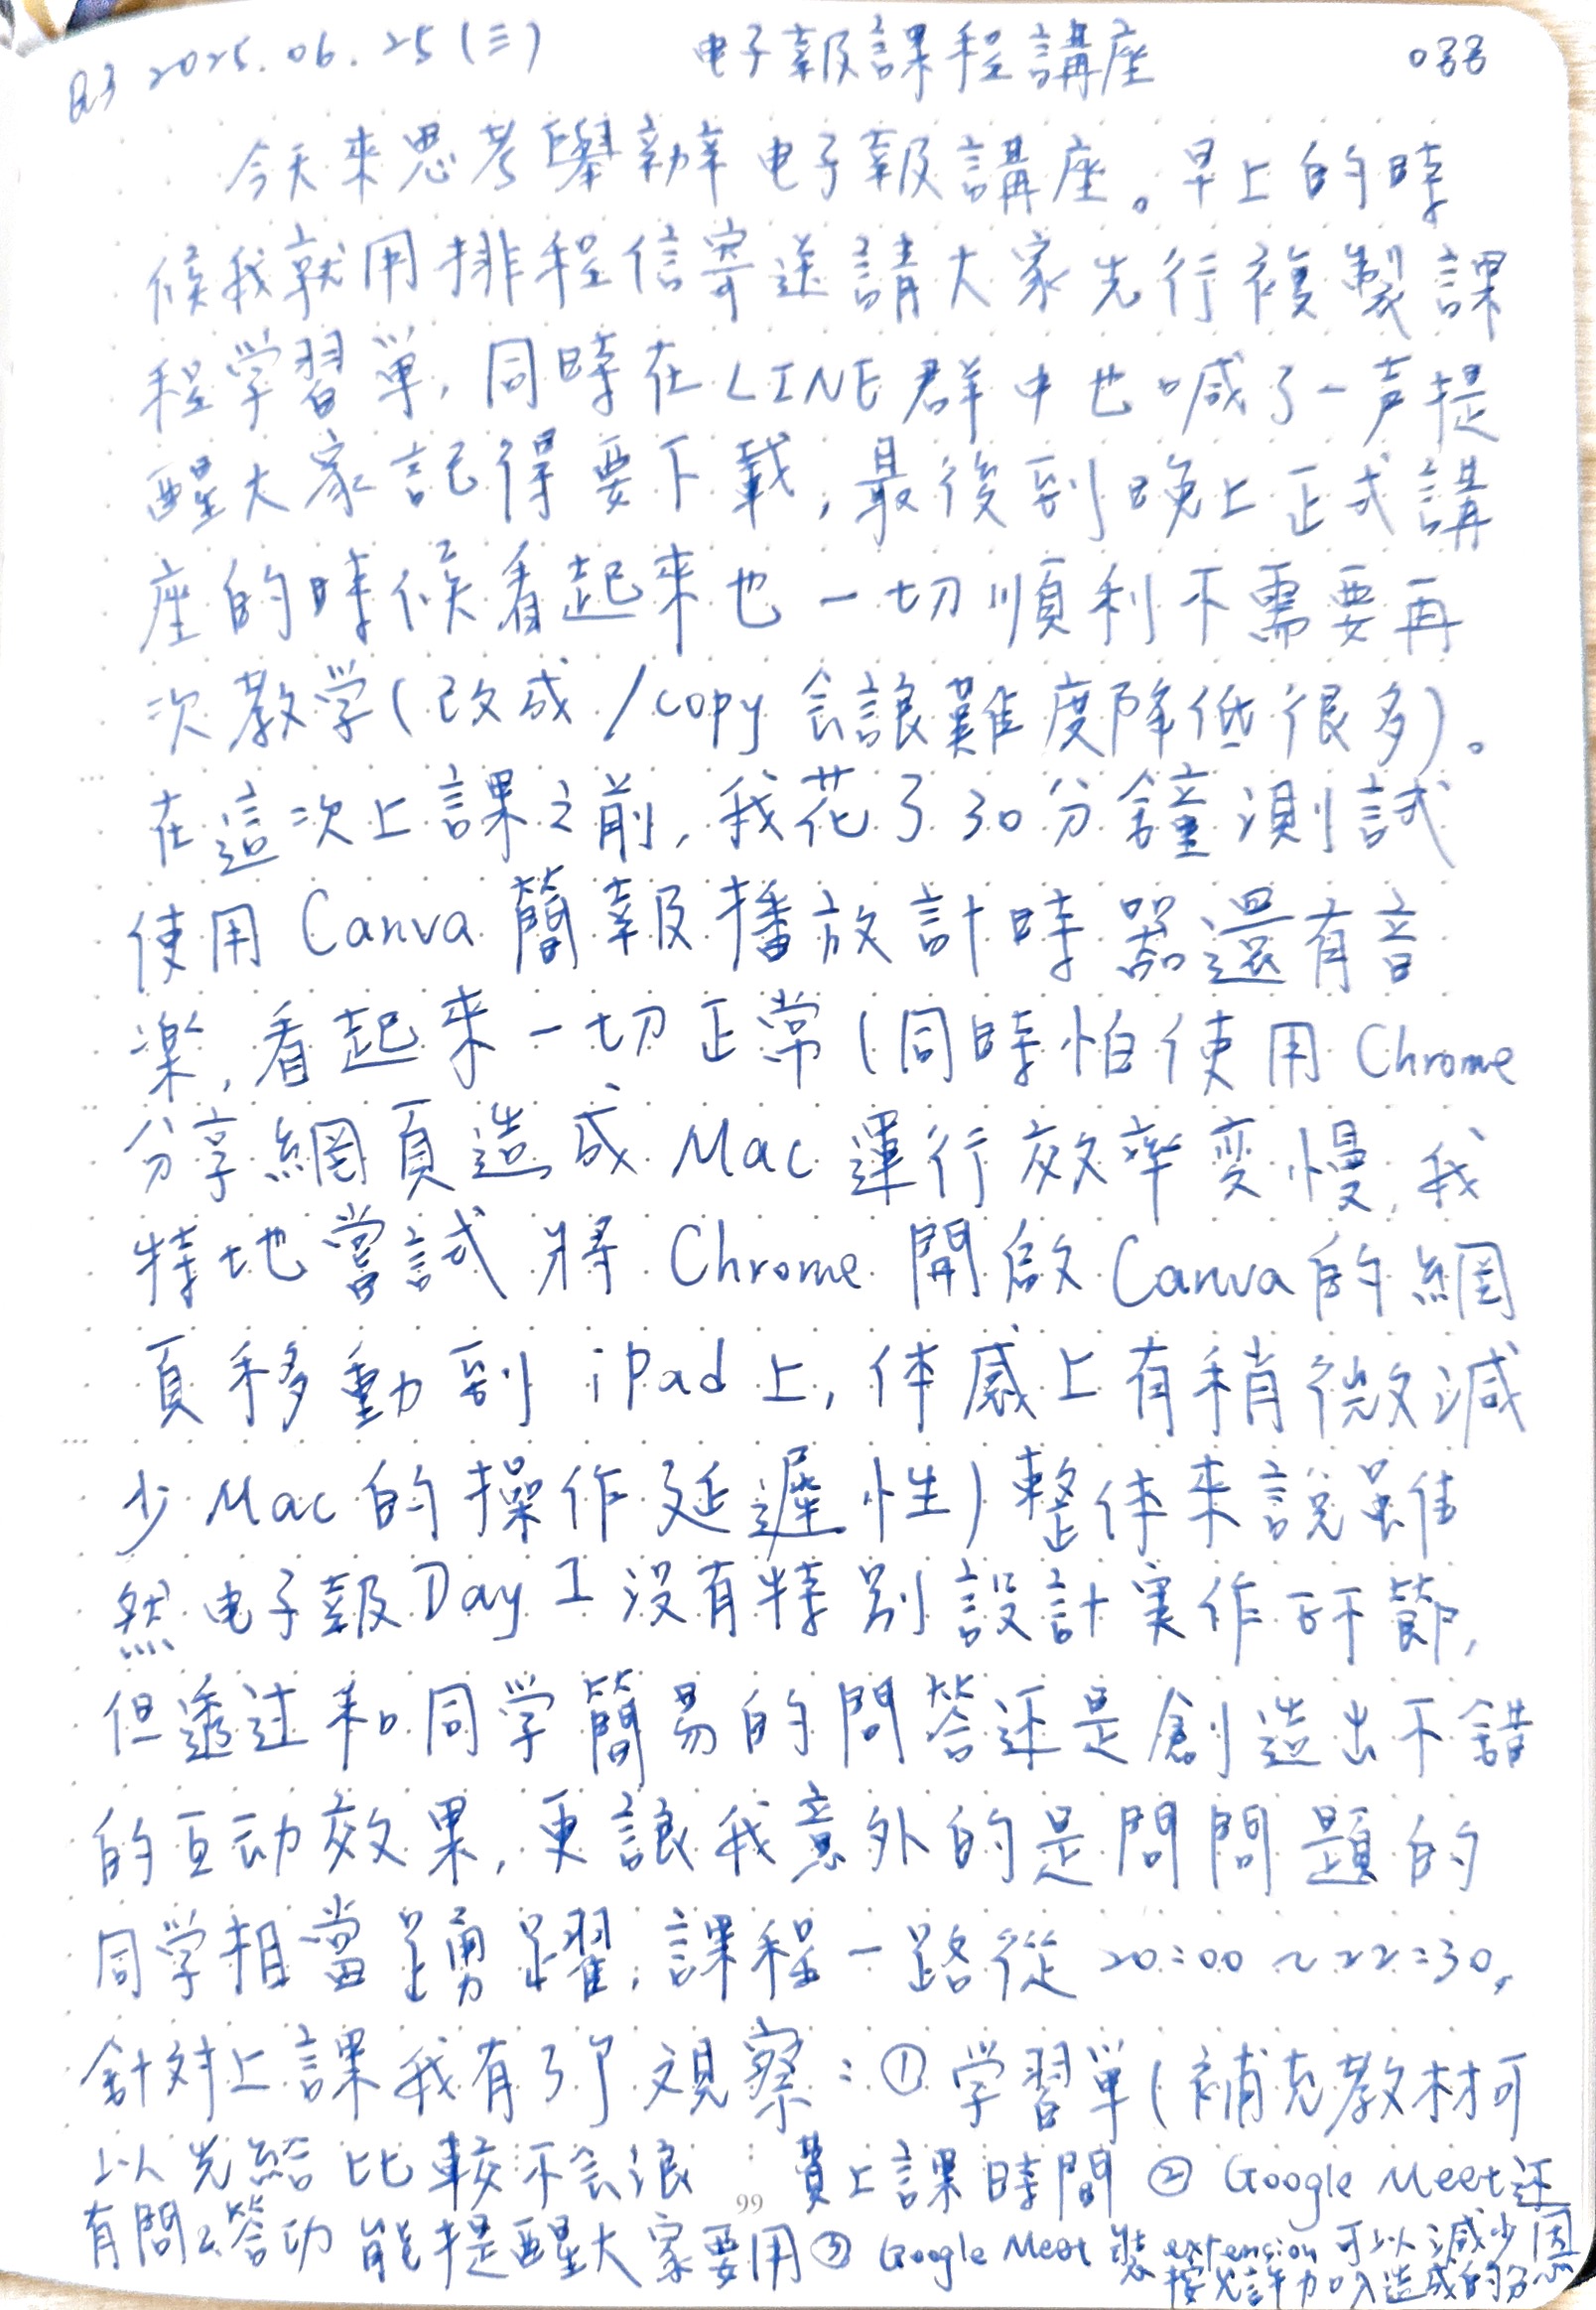 Q3 2025.06.25(三) 电子報課程講座 033
今天來思考舉辦电子報講座。早上的時
候我就用排程信寄送請大家先行複製課
程学習單,同時在LINE群中也喊了一声提
醒大家記得要下載,最後到晚上正式講
座的時候看起來也一切順利不需要再
次教学(改成/copy会讓難度降低很多)。
在這次上課之前,我花了30分鐘測試
使用Canva簡報播放計時器還有音
楽,看起來一切正常(同時怕使用Chrome
分享網頁造成Mac運行效率変慢,我
特地嘗試將Chrome開啟Canva的網
頁移動到iPad上,体感上有稍微減
少Mac的操作延遲性)整体來說雖
然电子報Day1没有特别設計実作环節,
但透过和同学簡易的問答还是創造出不錯
的互动效果,更讓我意外的是問問題的
同学相當踴躍,課程一路從20:00~22:30,
針対上課我有3个观察:①学習單(補充教材可
以先給比較不会浪費上課時間②Google Meet还
有問公答功能提醒大家要用③Google Meet裝extension可以減少因
按允許加入造成的分心
99